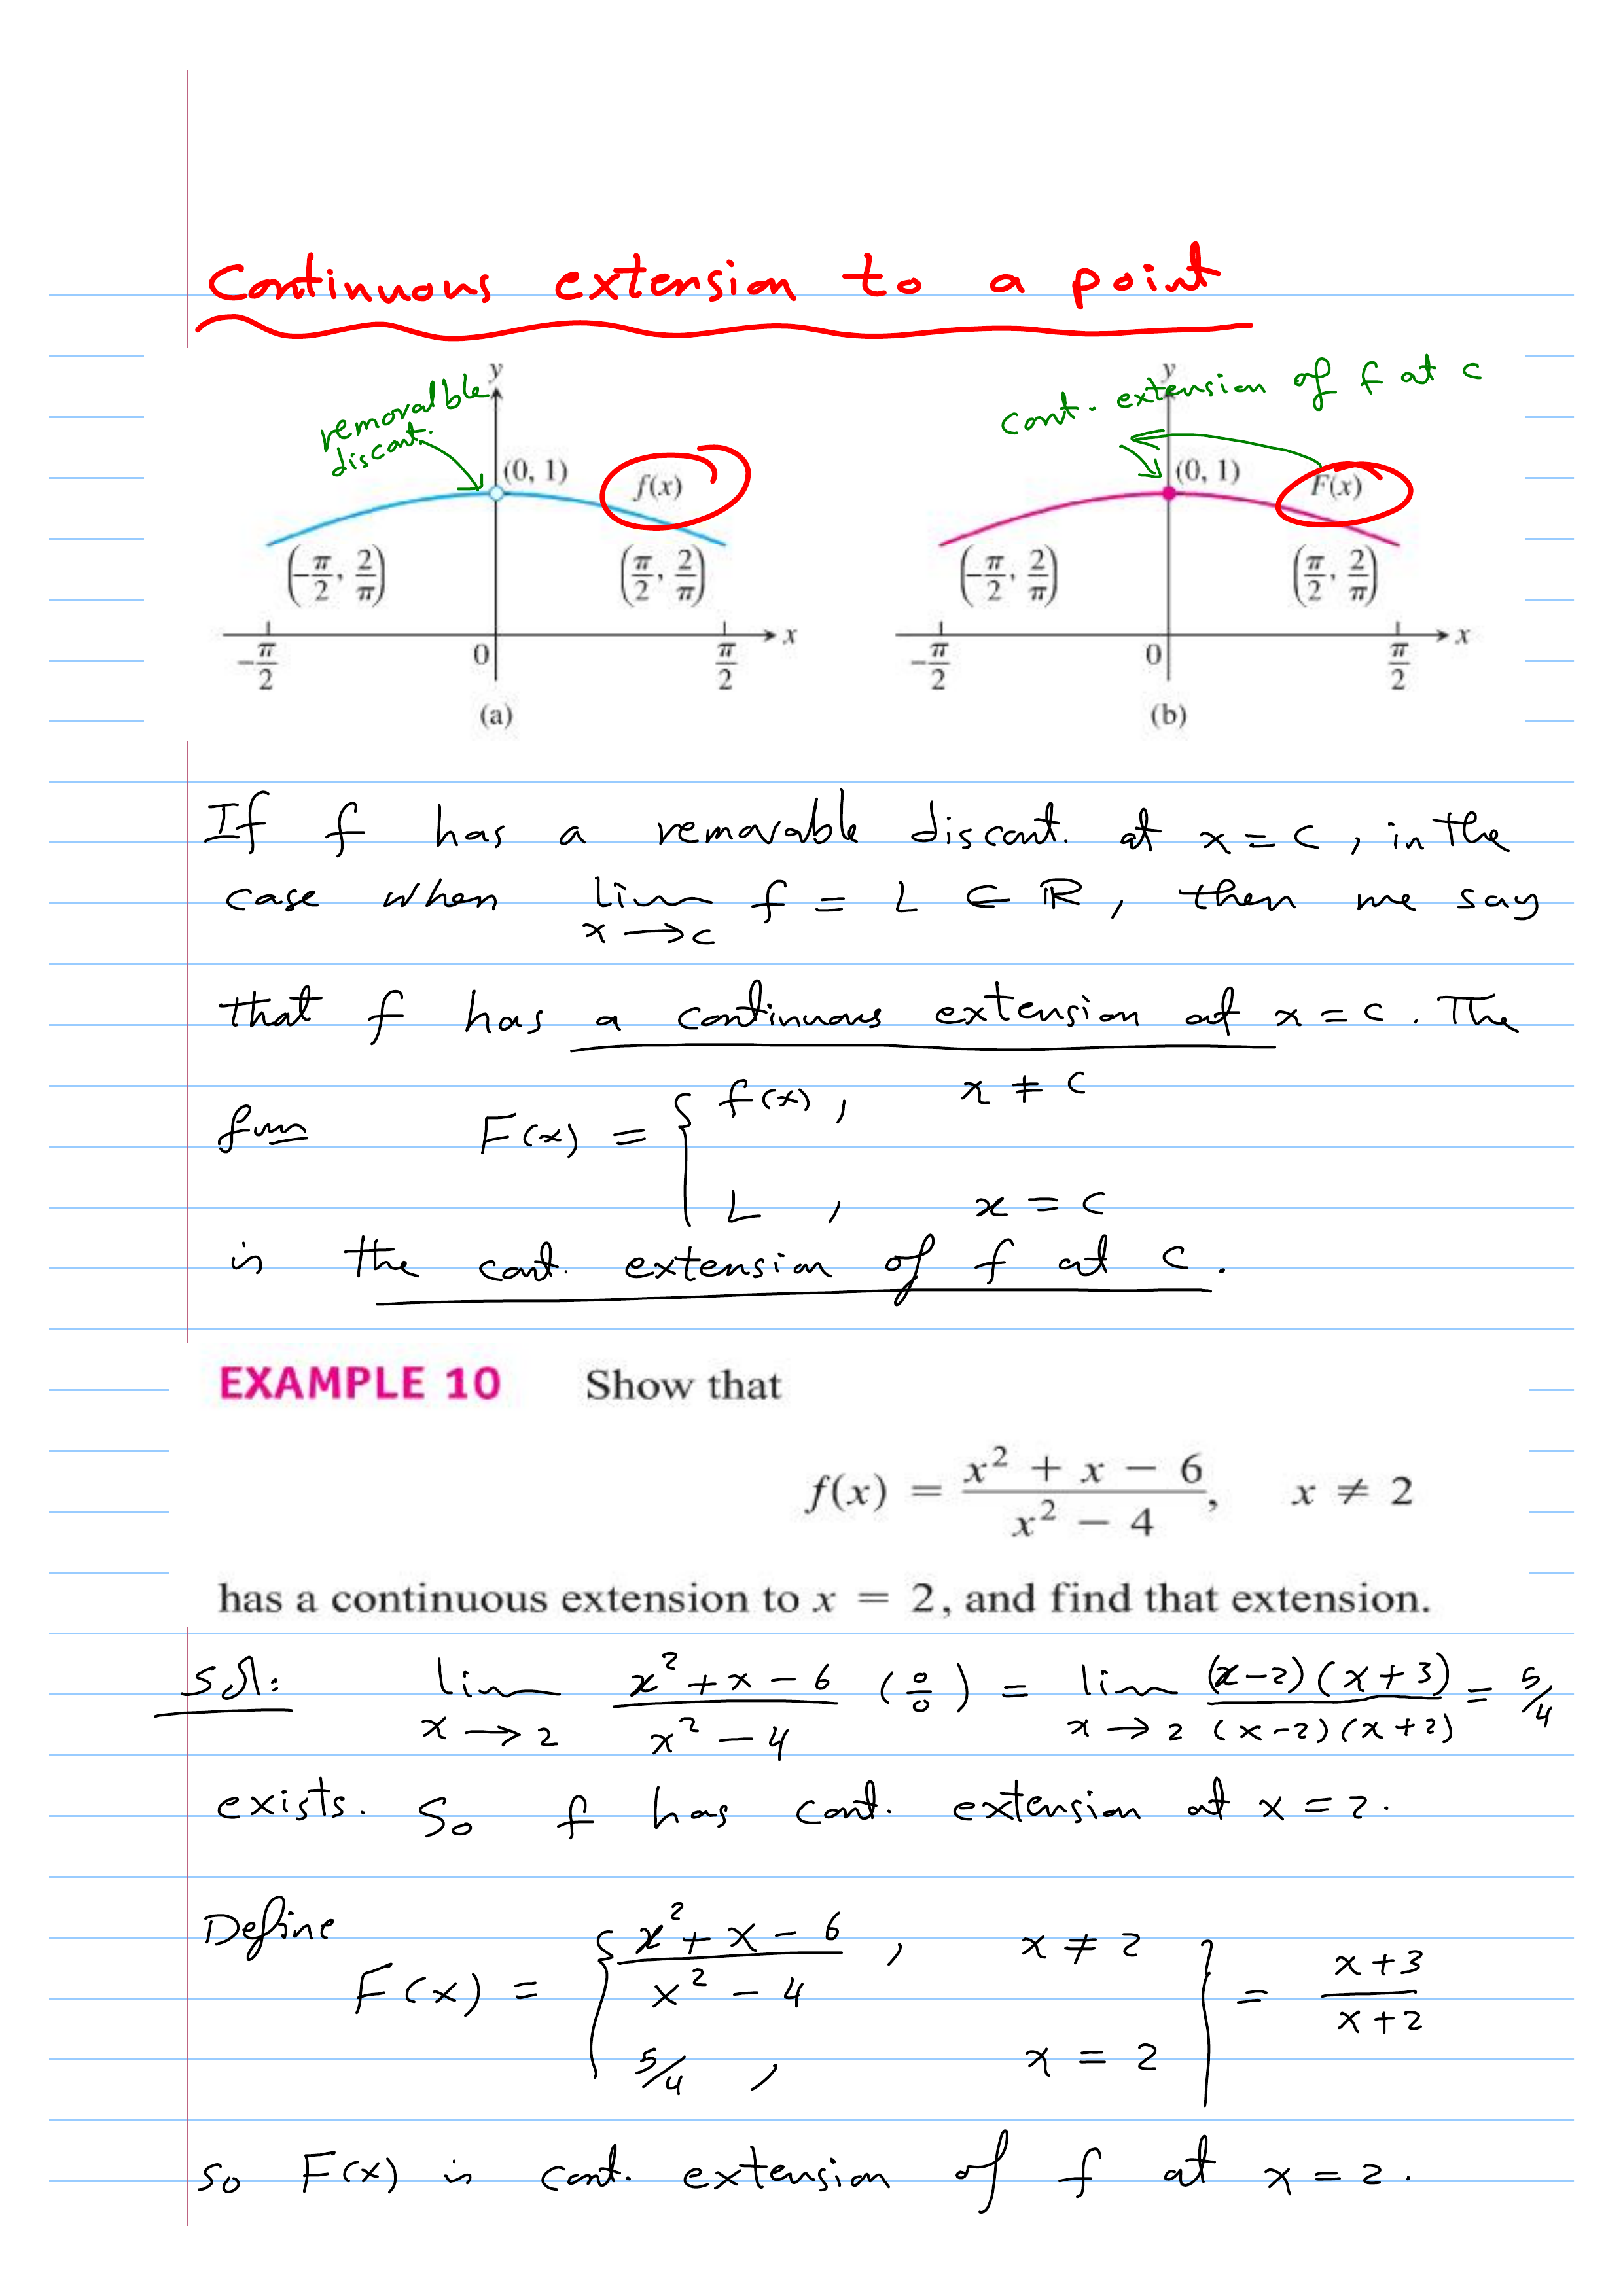 Continuous extension to a point
removalble
discont.
y
(0, 1)
f(x)
(-π/2, 2/π)
(π/2, 2/π)
-π/2
0
π/2
x
(a)
cont. extension of f at c
y
(0, 1)
F(x)
(-π/2, 2/π)
(π/2, 2/π)
-π/2
0
π/2
x
(b)
If f has a removable discont. at x = c, in the
case when lim f = L ∈ ℝ, then we say
x → c
that f has a continuous extension at x = c. The
fun F(x) = { f(x), x ≠ c
L, x = c
is the cont. extension of f at c.
EXAMPLE 10 Show that
f(x) = (x² + x − 6)/(x² − 4), x ≠ 2
has a continuous extension to x = 2, and find that extension.
Sol: lim x→2 (x² + x − 6)/(x² − 4) (0/0) = lim x→2 (x−2)(x+3)/(x−2)(x+2) = 5/4
exists. So f has cont. extension at x = 2.
Define
F(x) = { (x² + x − 6)/(x² − 4), x ≠ 2
5/4, x = 2 } = (x+3)/(x+2)
so F(x) is cont. extension of f at x = 2.